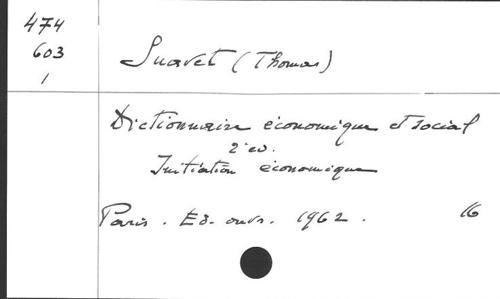 474
603
1
Suavet (Thomas)
Dictionnaire économique et social
2e ed.
Initiation économique
Paris. Ed. ouvr. 1962. 16